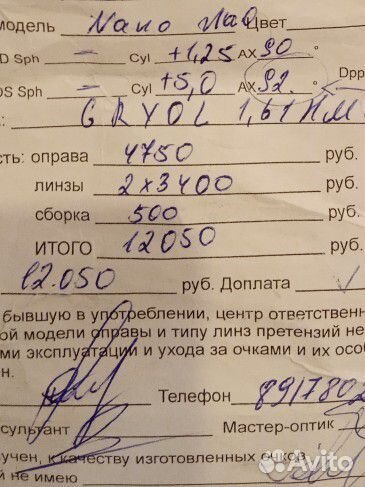 модель Nano цвет
D Sph — Cyl +1,25 AX 90 °
OS Sph — Cyl +5,0 AX 92 ° Dpp
: CRYOL 1,61
сть: оправа 4750 руб.
линзы 2x3400 руб.
сборка 500 руб.
ИТОГО 12050 руб.
12.050 руб. Доплата
бывшую в употреблении, центр ответственн
ой модели оправы и типу линз претензий не
ми эксплуатации и ухода за очками и их особ
н.
Телефон 8917802
сультант Мастер-оптик
учен, к качеству изготовленных очков
й не имею
Avito